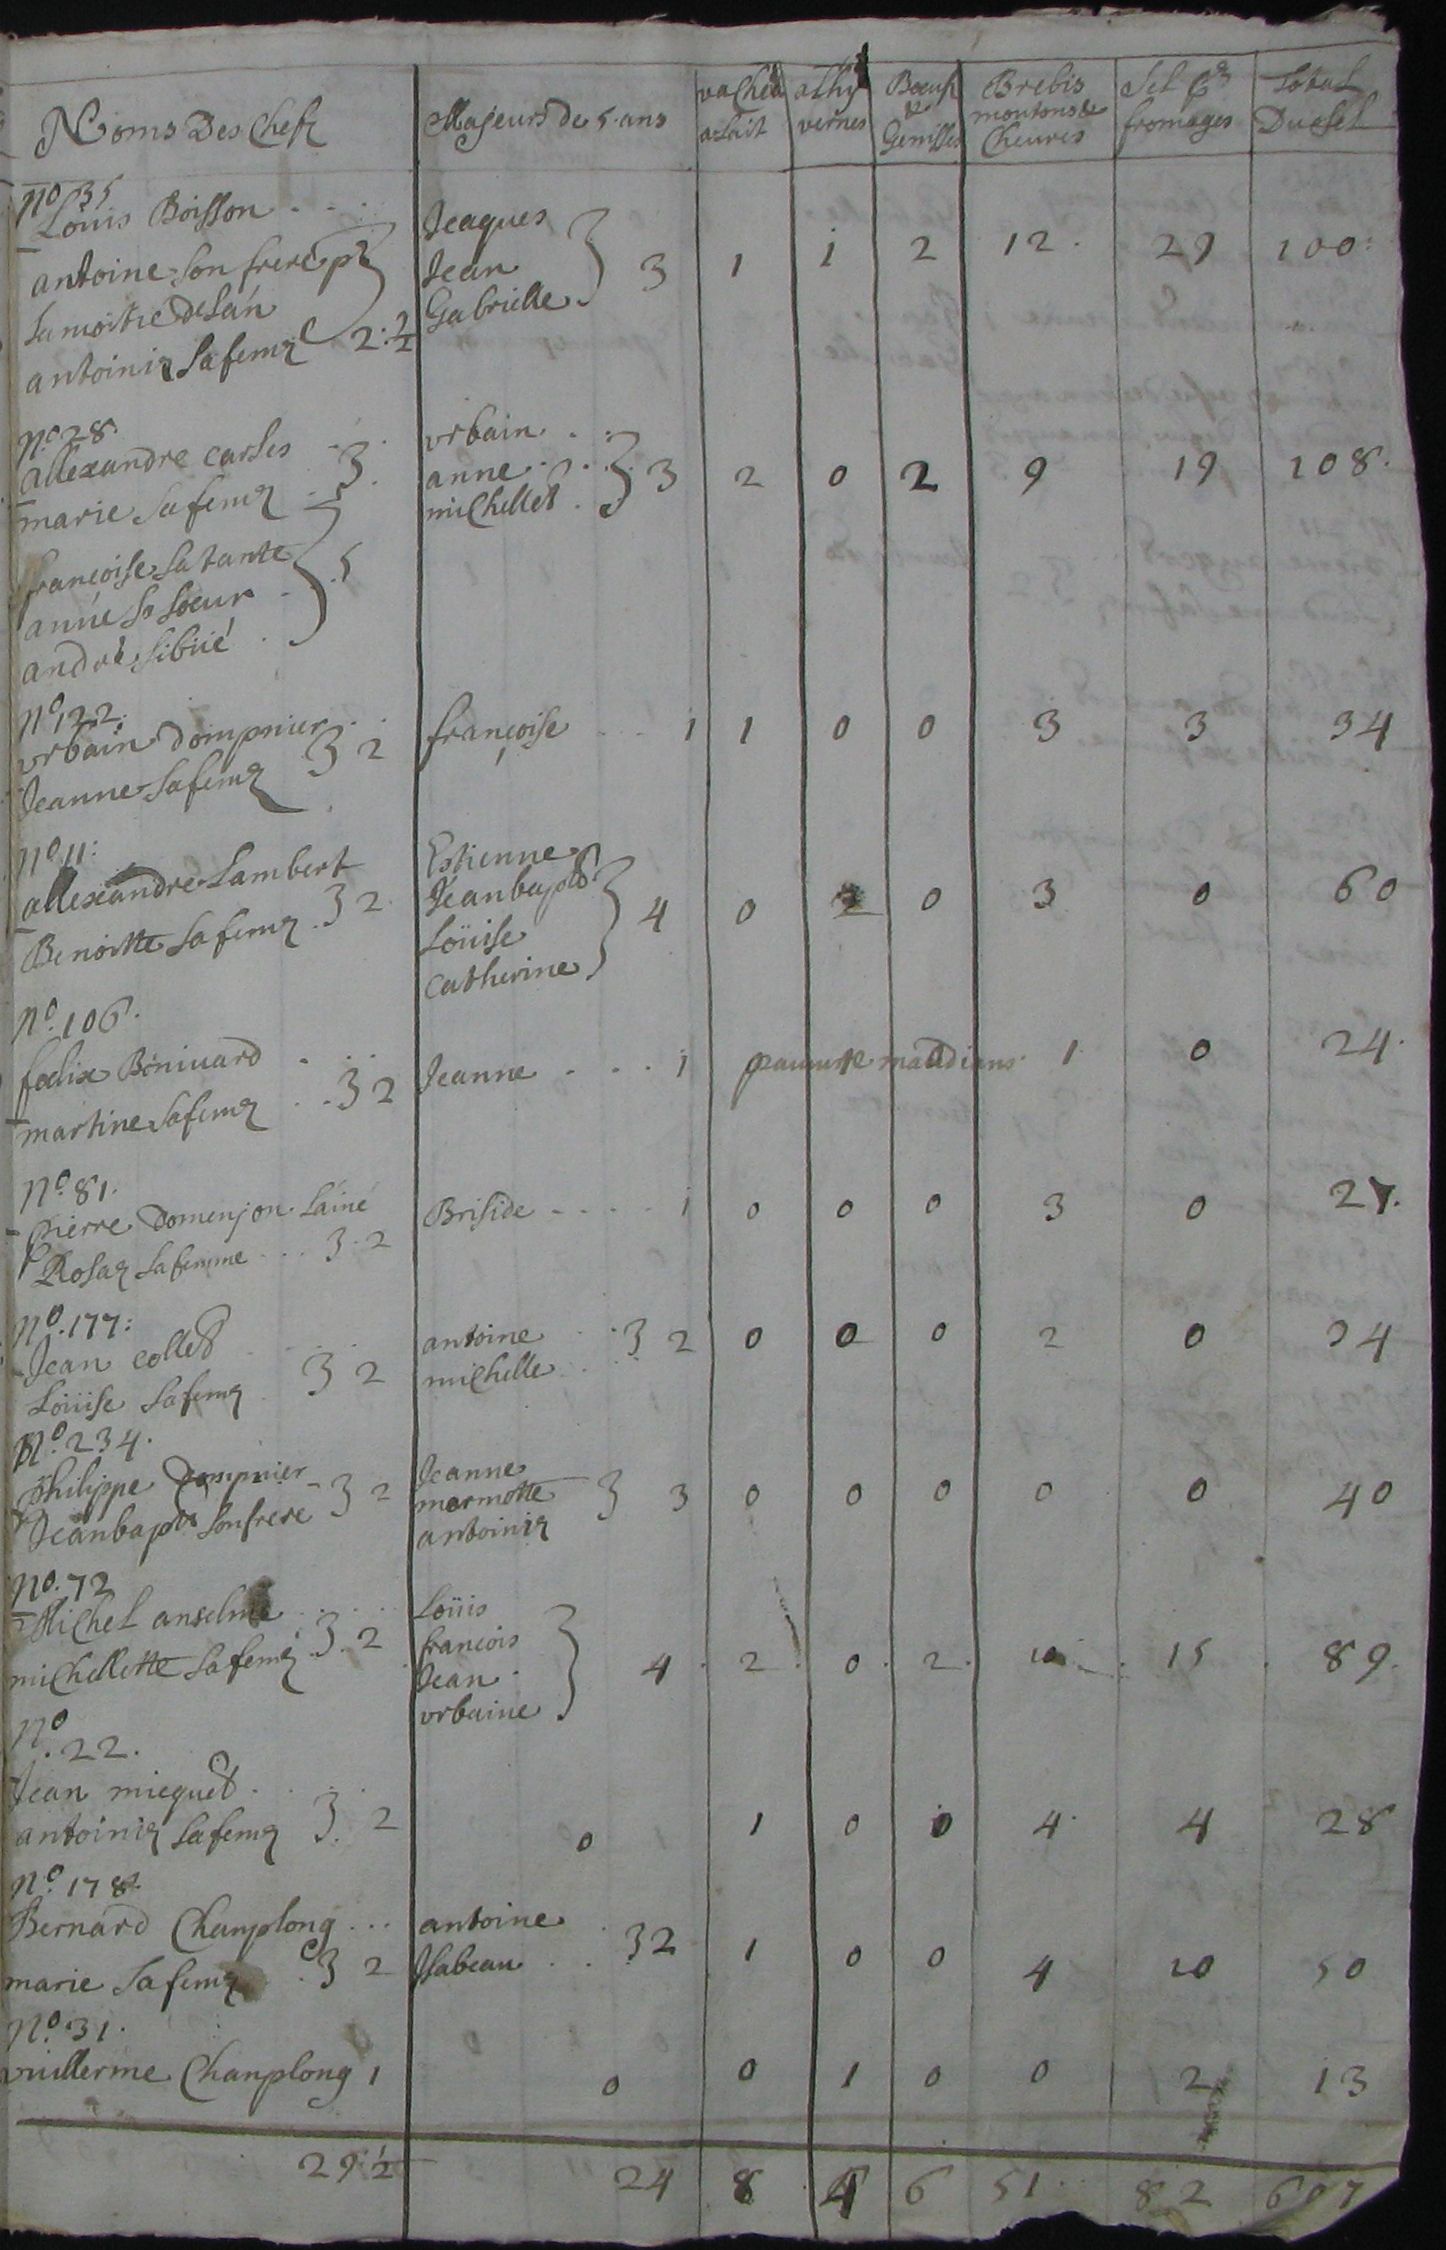 Noms Des Chefz | Majeurs de 5 ans | vaches a lait | athy vernes | Boeufz & Genisses | Brebis moutons & Cheures | Sel Pr fromages | total Du sel
No 35
Louis Boisson . . . Jeaques
antoine son frere pr Jean } 3 1 1 2 12 . 29 100:
la moitié de l'an Gabrielle
antoinia sa feme 2.½
No 28.
allexandre carles . 3 . urbain . .
marie sa feme anne . . } 3 2 0 2 9 19 108.
michelled .
francoise sa tante
anne sa soeur } 5
andre sibué
No 122:
urbain Dompnier . . françoise . . . 1 1 0 0 3 3 34
Jeanne sa feme } 2
No 11:
allexandre Lambert Estienne
Benoitte sa feme . } 2 Jeanbapte } 4 0 2 0 3 0 60
Loüise
Catherine
No. 106.
foelix Bonivard . . .
martine sa feme . . } 2 Jeanne . . . 1 1 0 24.
No. 81.
pierre Domenjon L'ainé Briside . . . . 1 0 0 0 3 0 27.
Rosaz sa femme . . . } 2
No. 177:
Jean colled . . . antoine . . } 2 0 0 0 2 0 34
Loüise sa feme } 2 michelle
No. 234.
Philippe Dompnier } 2 Jeanne
Jeanbapte son frere marmotte } 3 0 0 0 0 0 40
antoinia
No. 72
Michel anselme . . . Loüis
michellette sa feme } 2 francois
Jean . } 4 . 2 . 0 . 2 . 10 . 15 . 89.
urbaine
No
. 22 .
Jean miequed . . .
antoinia sa feme } 2 0 1 0 0 4 . 4 28
No. 178.
Bernard Chanplong . . . antoine .
marie sa feme . } 2 Isabeau . . } 2 1 0 0 4 10 50
No. 31.
vuillerme Chanplong 1 0 0 1 0 0 2 13
29 ½ 24 8 4 6 51 . 82 607